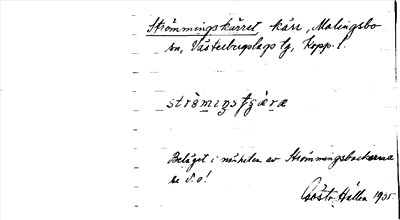 Strömmingskärret, kärr, Malingsbo
sn, Västerbergslags tg, Kopp. l.
strö̀miŋsçæ̀ræ
Beläget i närheten av Strömmingsbackarna
se d. o!
Gösta Hållen 1935.